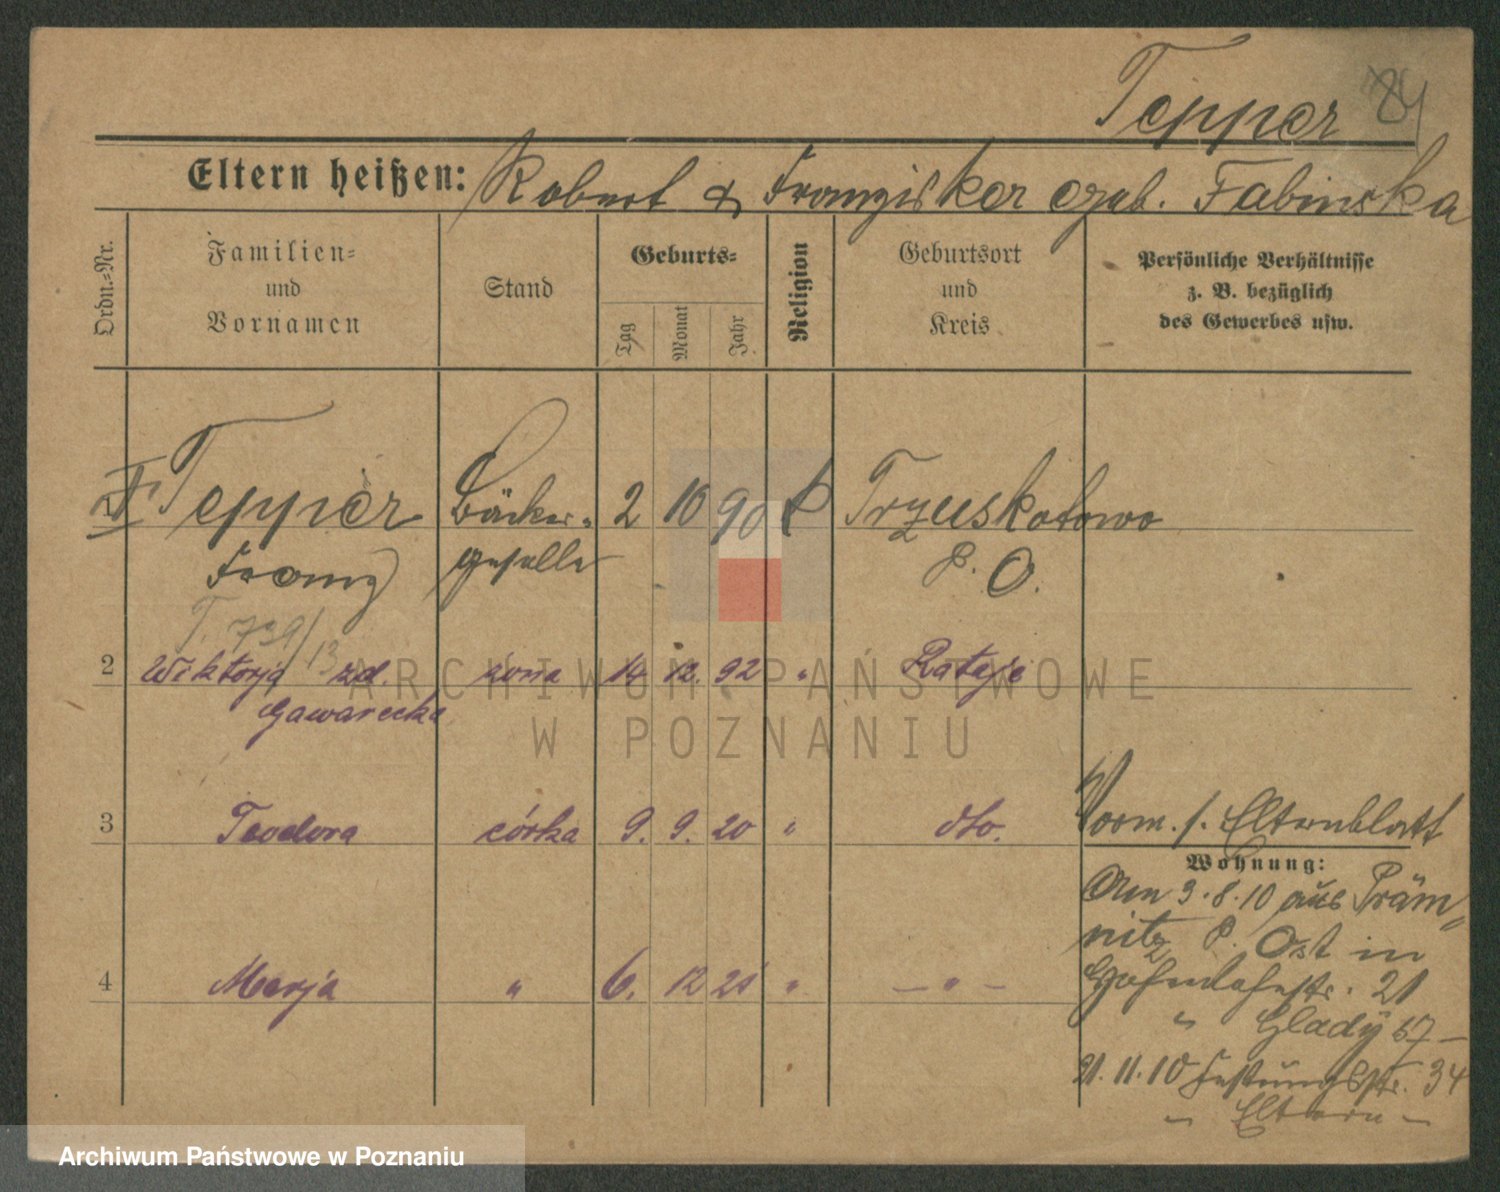 Tepper 84
Eltern heißen: Robert & Franziska geb. Fabinska
Ordn.-Nr.
Familien-
und
Vornamen
Stand
Geburts-
Tag
Monat
Jahr
Religion
Geburtsort
und
Kreis
Persönliche Verhältnisse
z. B. bezüglich
des Gewerbes usw.
Tepper Bäcker- 2 10 90 k Trzuskotowo
Franz geselle P. O.
T. 739/13
2 Wiktorja zd. żona 14 12. 92 " Rataje
Gawarecka
3 Teodora córka 9. 9. 20 " dto.
Vorm. s. Elternblatt
Wohnung:
Am 3.8.10 aus Präm-
nitz P. Ost in
4 Marja " 6. 12 21 " — " —
21
" Glady 67 —
21.11.10 Festungsstr. 34
— Eltern —
ARCHIWUM PAŃSTWOWE
W POZNANIU
Archiwum Państwowe w Poznaniu